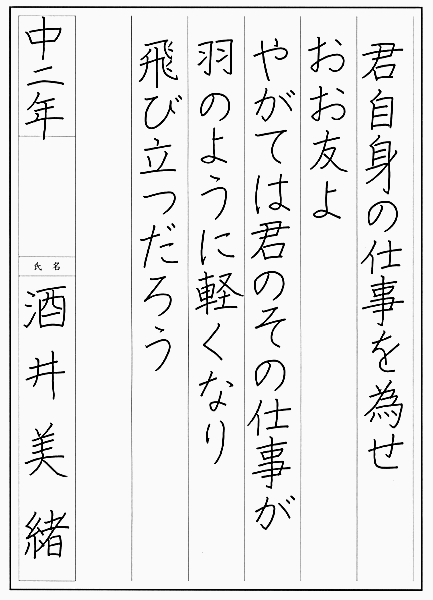 君自身の仕事を為せ
おお友よ
やがては君のその仕事が
羽のように軽くなり
飛び立つだろう
中二年
氏名
酒井美緒